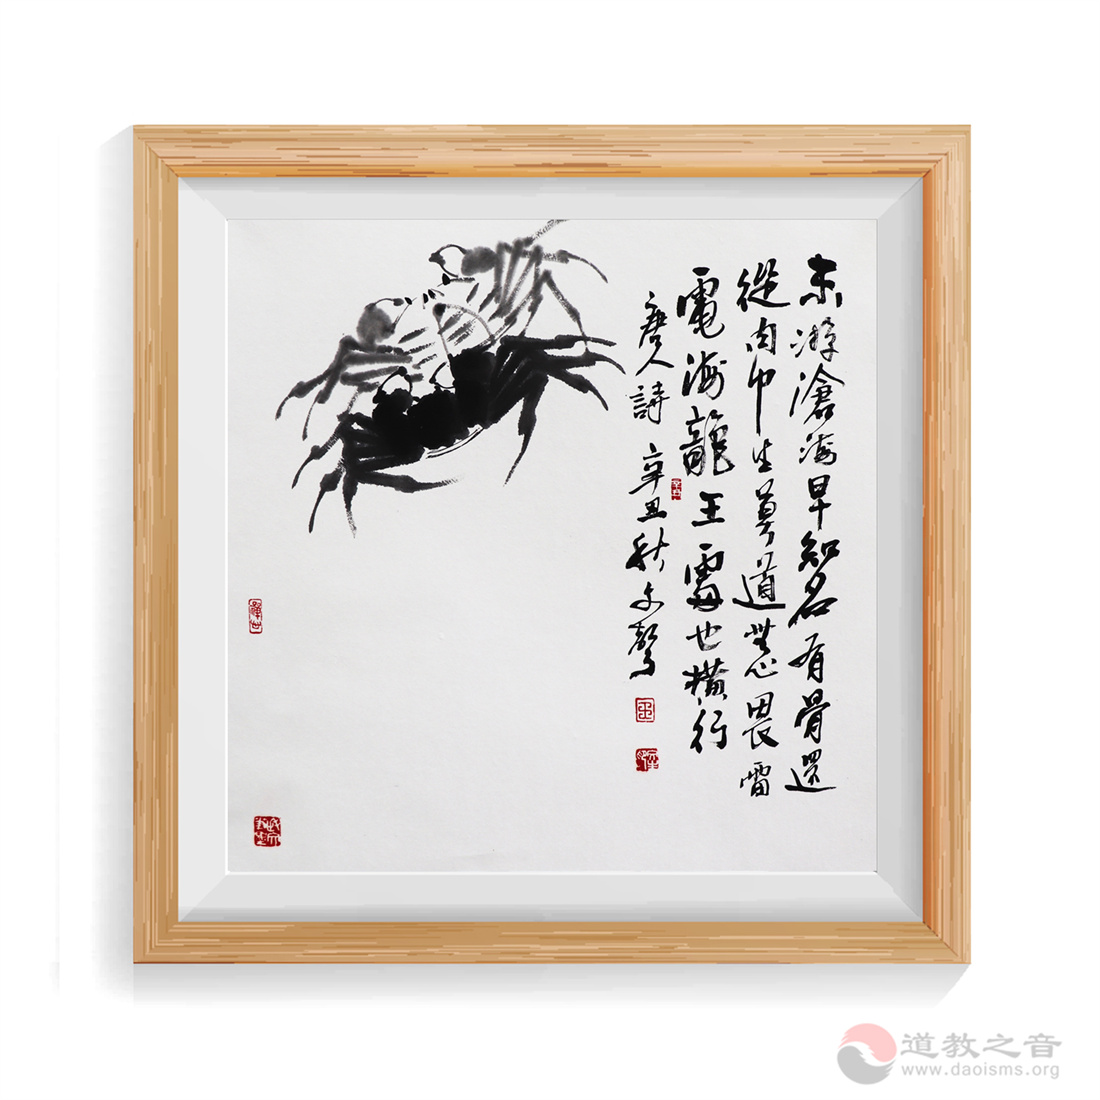 未游滄海早知名有骨還
從肉中生莫道無心畏雷
電海龍王處也橫行
唐人詩 辛丑秋文
道教之音
www.daoisms.org